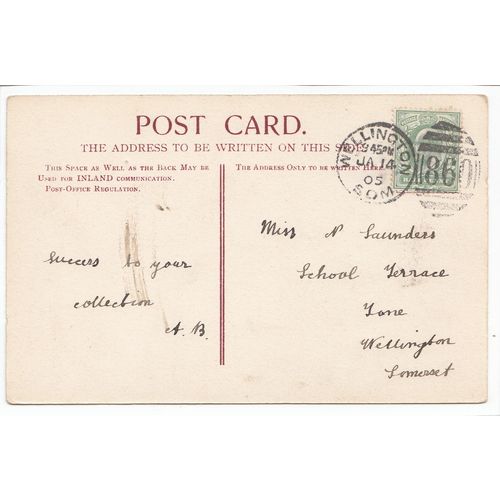 POST CARD.
THE ADDRESS TO BE WRITTEN ON THIS SIDE.
THIS SPACE AS WELL AS THE BACK MAY BE
USED FOR INLAND COMMUNICATION.
POST-OFFICE REGULATION.
THE ADDRESS ONLY TO BE WRITTEN HERE.
WELLINGTON
3 45PM
JA 14
05
SOM
860
Success to your
collection
A. B.
Miss N Saunders
School Terrace
Tone
Wellington
Somerset